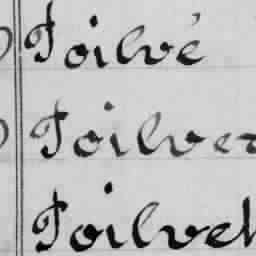 Poilvé
Poilver
Poilvet